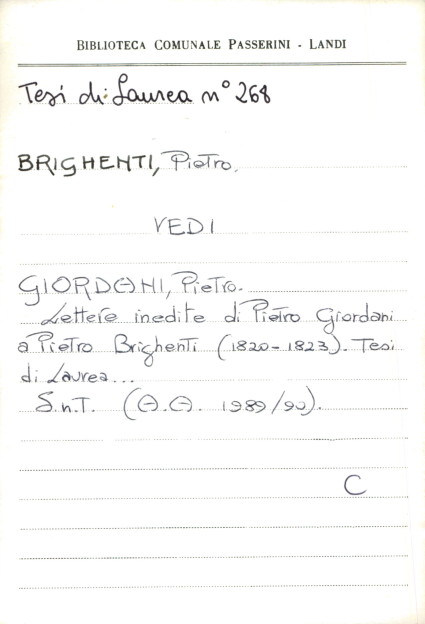 BIBLIOTECA COMUNALE PASSERINI - LANDI
Tesi di Laurea n° 268
BRIGHENTI, Pietro.
VEDI
GIORDANI, Pietro.
Lettere inedite di Pietro Giordani
a Pietro Brighenti (1820-1823). Tesi
di Laurea...
S.n.T. (A.A. 1989/90).
C